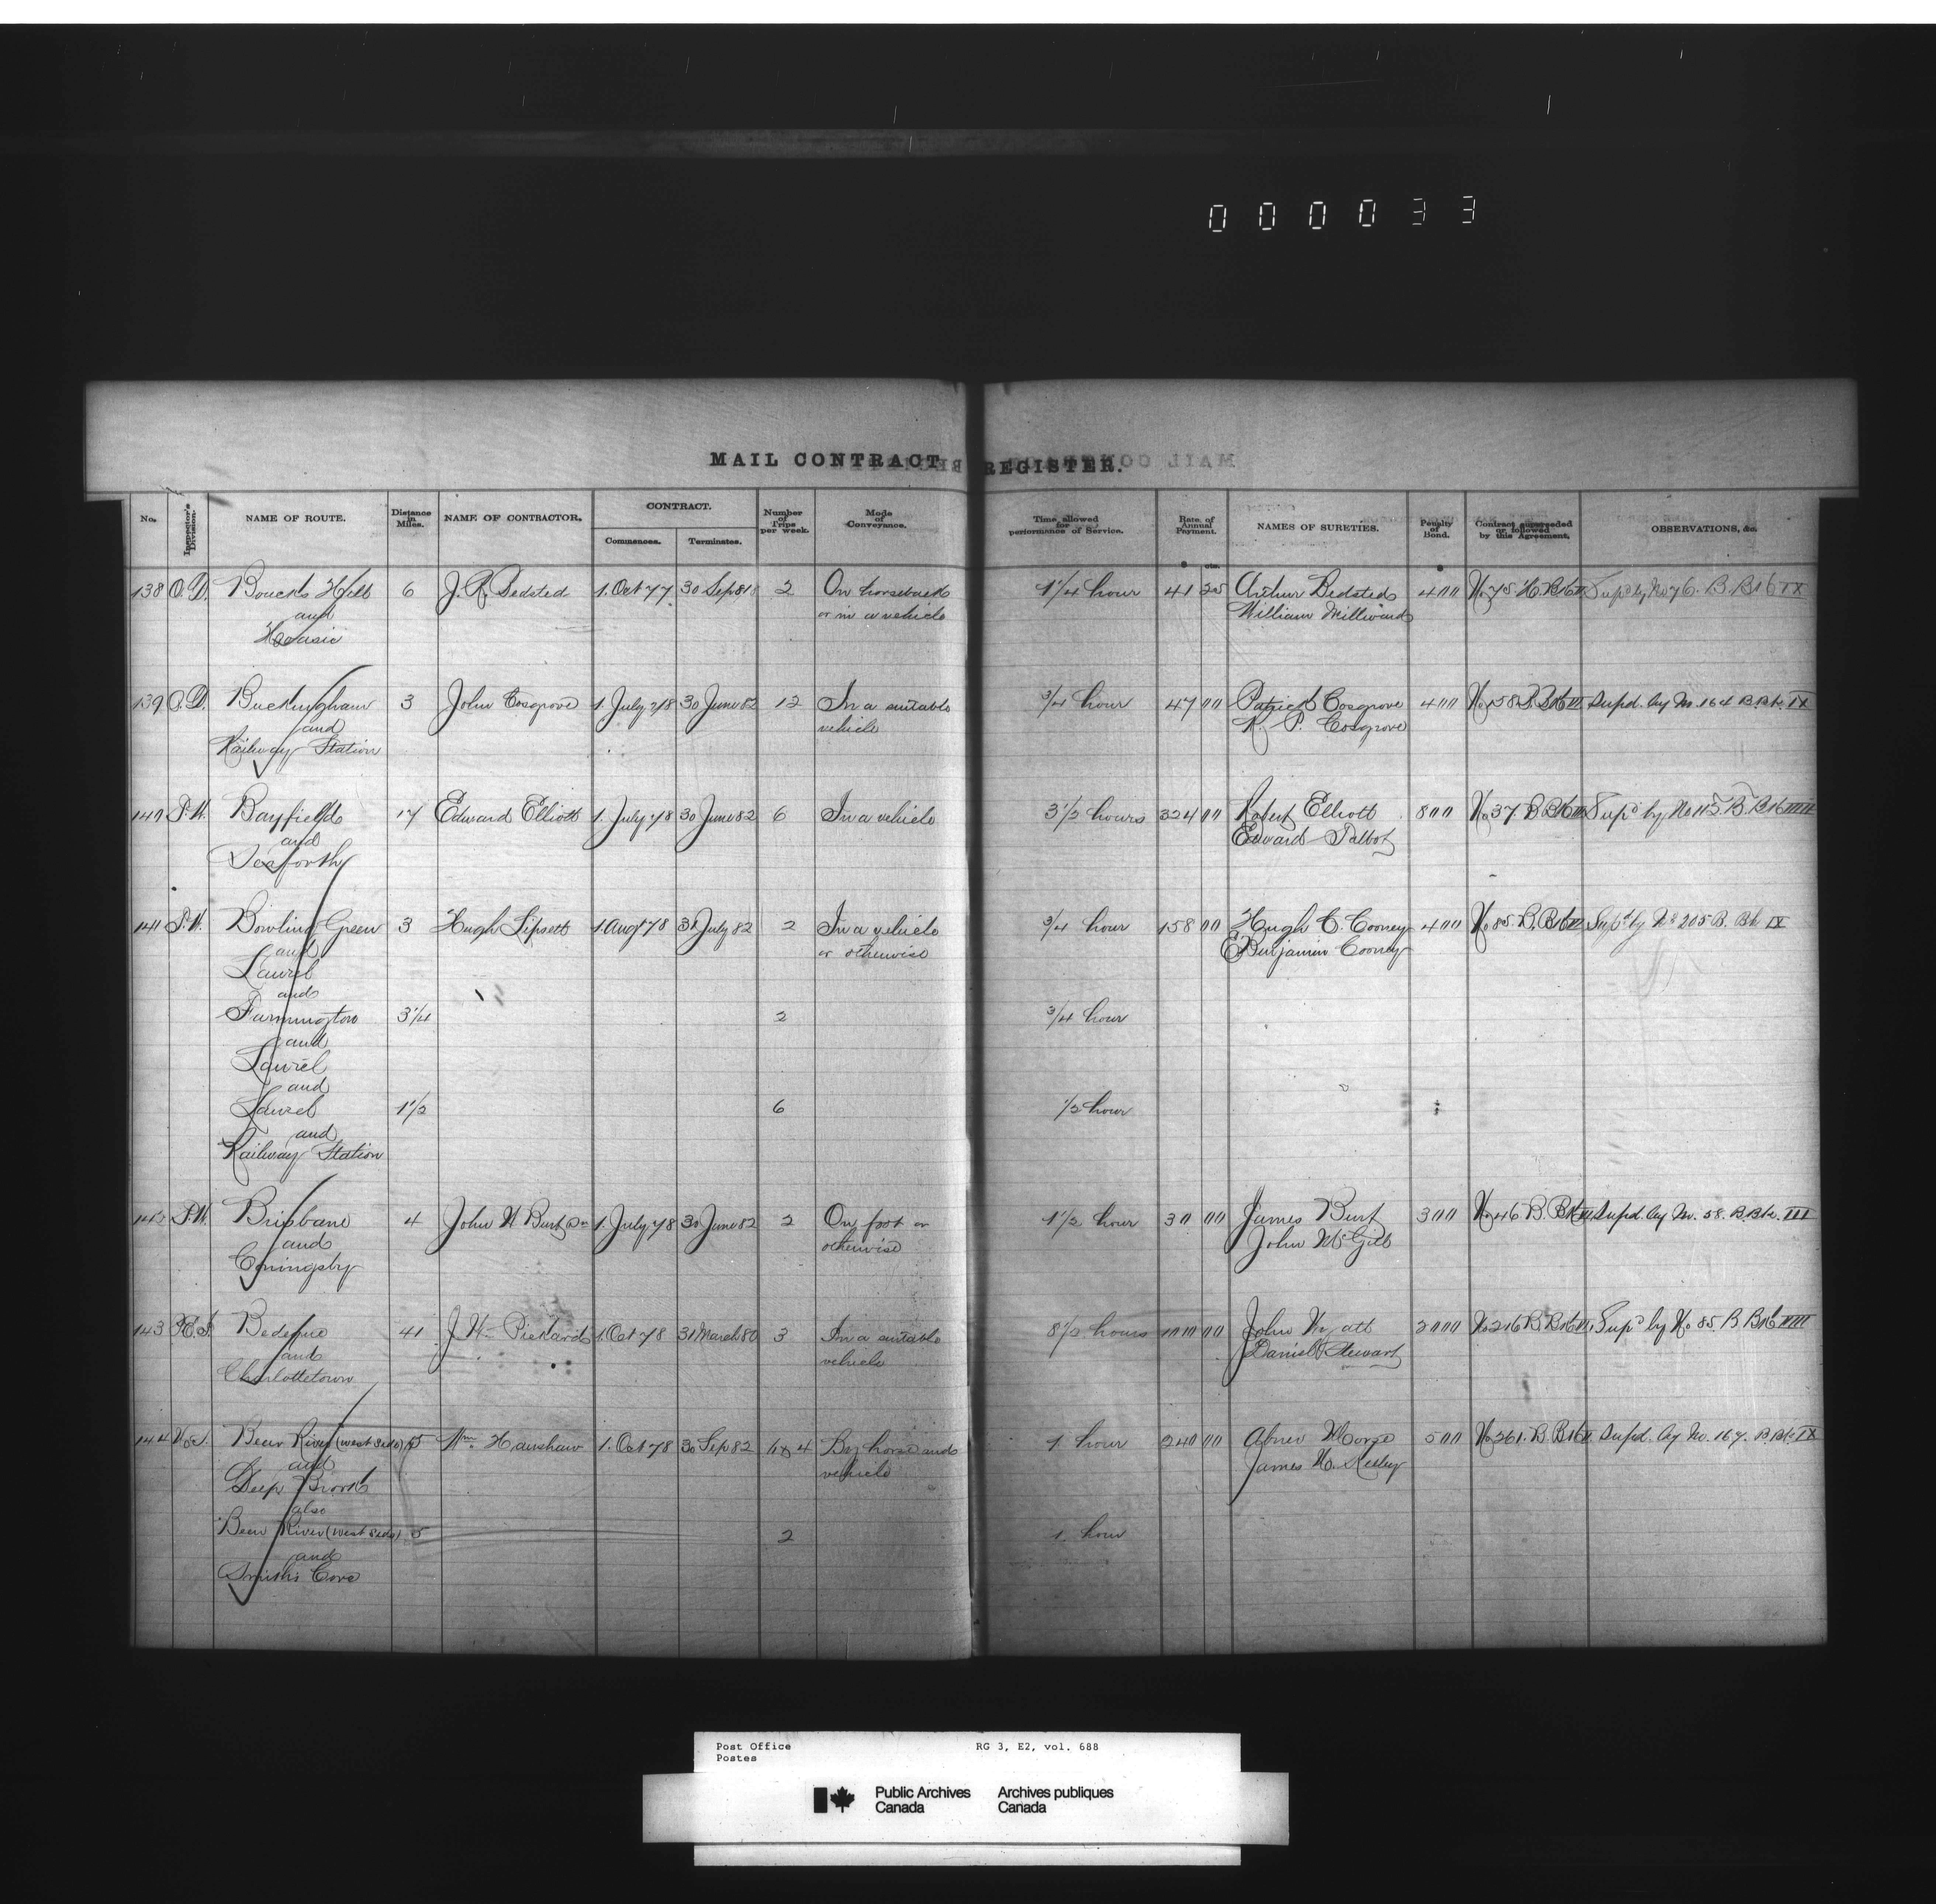 000033
MAIL CONTRACT REGISTER.
No. Inspector's Division. NAME OF ROUTE. Distance in Miles. NAME OF CONTRACTOR. CONTRACT. Commences. Terminates. Number of Trips per week. Mode of Conveyance. Time allowed for performance of Service. Rate of Annual Payment. NAMES OF SURETIES. Penalty of Bond. Contract superseded or followed by this Agreement. OBSERVATIONS, &c.
$ cts. $
138 O.D. Boucks Hill 6 J. R. Bedsted 1. Oct 77 30 Sep 81 2 On horseback 1 1/4 hour 41 25 Arthur Bedsted 400 No 75 H. Bk II Supd by No 76. B. Bk IX
and or in a vehicle William Milliward
Hoasic
139 O.D. Buckingham 3 John Cosgrove 1. July 78 30 June 82 12 In a suitable 3/4 hour 47 00 Patrick Cosgrove 400 No 158 B. Bk II Supd. by No. 164 B. Bk. IX
and vehicle K. P. Cosgrove
Railway Station
140 S.W. Bayfield 17 Edward Elliott 1. July 78 30 June 82 6 In a vehicle 3 1/2 hours 324 00 Robert Elliott 800 No 37 B Bk II Supd by No 115 B. Bk VIII
and Edward Talbot
Seaforth
141 S.W. Bowling Green 3 Hugh Lipsett 1 Aug 78 31 July 82 2 In a vehicle 3/4 hour 158 00 Hugh C. Cooney 400 No 85. B. Bk II Supd by No 205 B. Bk IX
and or otherwise Benjamin Cooney
Laurel
and
Farmington 3 1/4 2 3/4 hour
and
Laurel
and
Laurel 1 1/2 6 1/2 hour
and
Railway Station
142 S.W. Brisbane 4 John W Burt 1. July 78 30 June 82 2 On foot or 1 1/2 hour 30 00 James Burt 300 No 46 B. Bk II Supd. by No. 58. B. Bk. III
and otherwise John McGill
Coningsby
143 P.E.I. Bedeque 41 J. W. Pickard 1. Oct 78 31 March 80 3 In a suitable 8 1/2 hours 1000 00 John 2000 No 216 B Bk II Supd by No 85. B Bk VIII
and vehicle Daniel Stewart
Charlottetown
144 N.S. Bear River (west side) 5 Wm. Henshaw 1. Oct 78 30 Sep 82 4 By horse and 1 hour 240 00 Abner Morse 500 No 261. B Bk II Supd. by No. 167. B. Bk. IX
and vehicle James H.
Deep Brook
also
Bear River (west side) 5 2 1. hour
and
Smith's Cove
Post Office RG 3, E2, vol. 688
Postes
Public Archives Archives publiques
Canada Canada